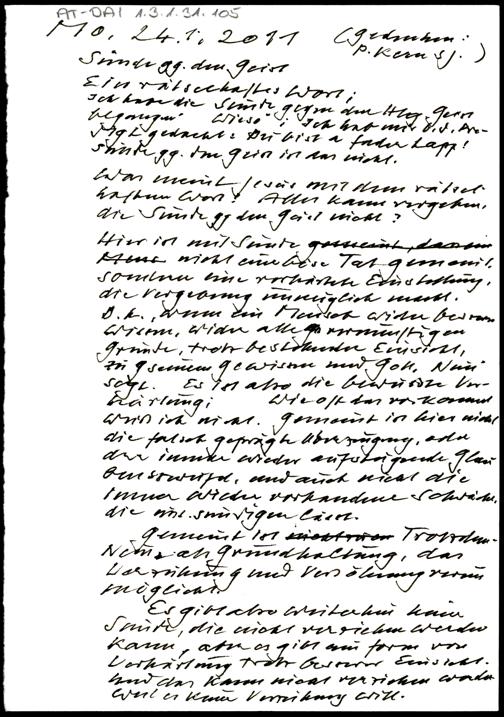 AT-DAI 1.3.1.31.105
Mo, 24.1.2011 (Gedenken:
P. Kern SJ.)
Sünde gg. den Geist
Ein rätselhaftes Wort;
Ich habe die Sünde gegen den Hlg. Geist
begangen! Wieso? : Ich hab mir b. d. Pre-
digt gedacht: Du bist a fader Lapp!
Sünde gg. den Geist ist das nicht.
Was meint Jesus mit dem rätsel-
haften Wort? Alles kann vergeben,
die Sünde gg den Geist nicht?
Hier ist mit Sünde gemeint,
nicht eine böse Tat gemeint,
sondern eine verhärtete Einstellung,
die Vergebung unmöglich macht.
D.h., wenn ein Mensch wider besseren
Wissen, wider alle vernünftigen
Gründe, trotz bestehender Einsicht,
zu seinem Gewissen und Gott, Nein
sagt. Es ist also die bewusste Ver-
härtung; Wie oft das vorkommt
weiß ich nicht. Gemeint ist hier nicht
die falsch geprägte Überzeugung, oder
der immer wieder aufsteigende Glau
benszweifel, und auch nicht die
immer wieder vorhandene Schwäche,
die uns sündigen lässt.
Gemeint ist Trotzdem-
Nein, als Grundhaltung, das
Verzeihung und Versöhnung verun
möglicht.
Es gibt also weiterhin keine
Sünde, die nicht verziehen werden
kann, aber es gibt eine Form von
Verhärtung trotz besserer Einsicht.
Und das kann nicht verziehen werden
weil es keine Verzeihung will.